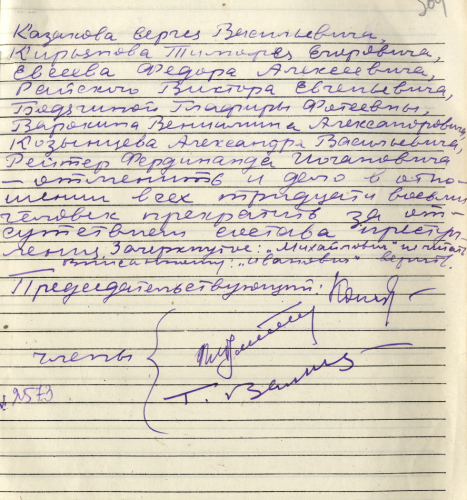 Казакова Сергея Васильевича,
Кирьянова Тимофея Егоровича,
Евсеева Федора Алексеевича,
Райского Виктора Евгеньевича,
Бодягиной Глафиры Фотеевны,
Варокина Вениамина Александровича,
Козынцева Александра Васильевича,
Рейтер Фердинанда Иогановича
— отменить и дело в отно-
шении всех тридцати восьми
человек прекратить за от-
сутствием состава преступ-
ления. Зачеркнутое: „Михайлович" не читать
Вписанному: „Иванович" верить.
Председательствующий:
члены
2573